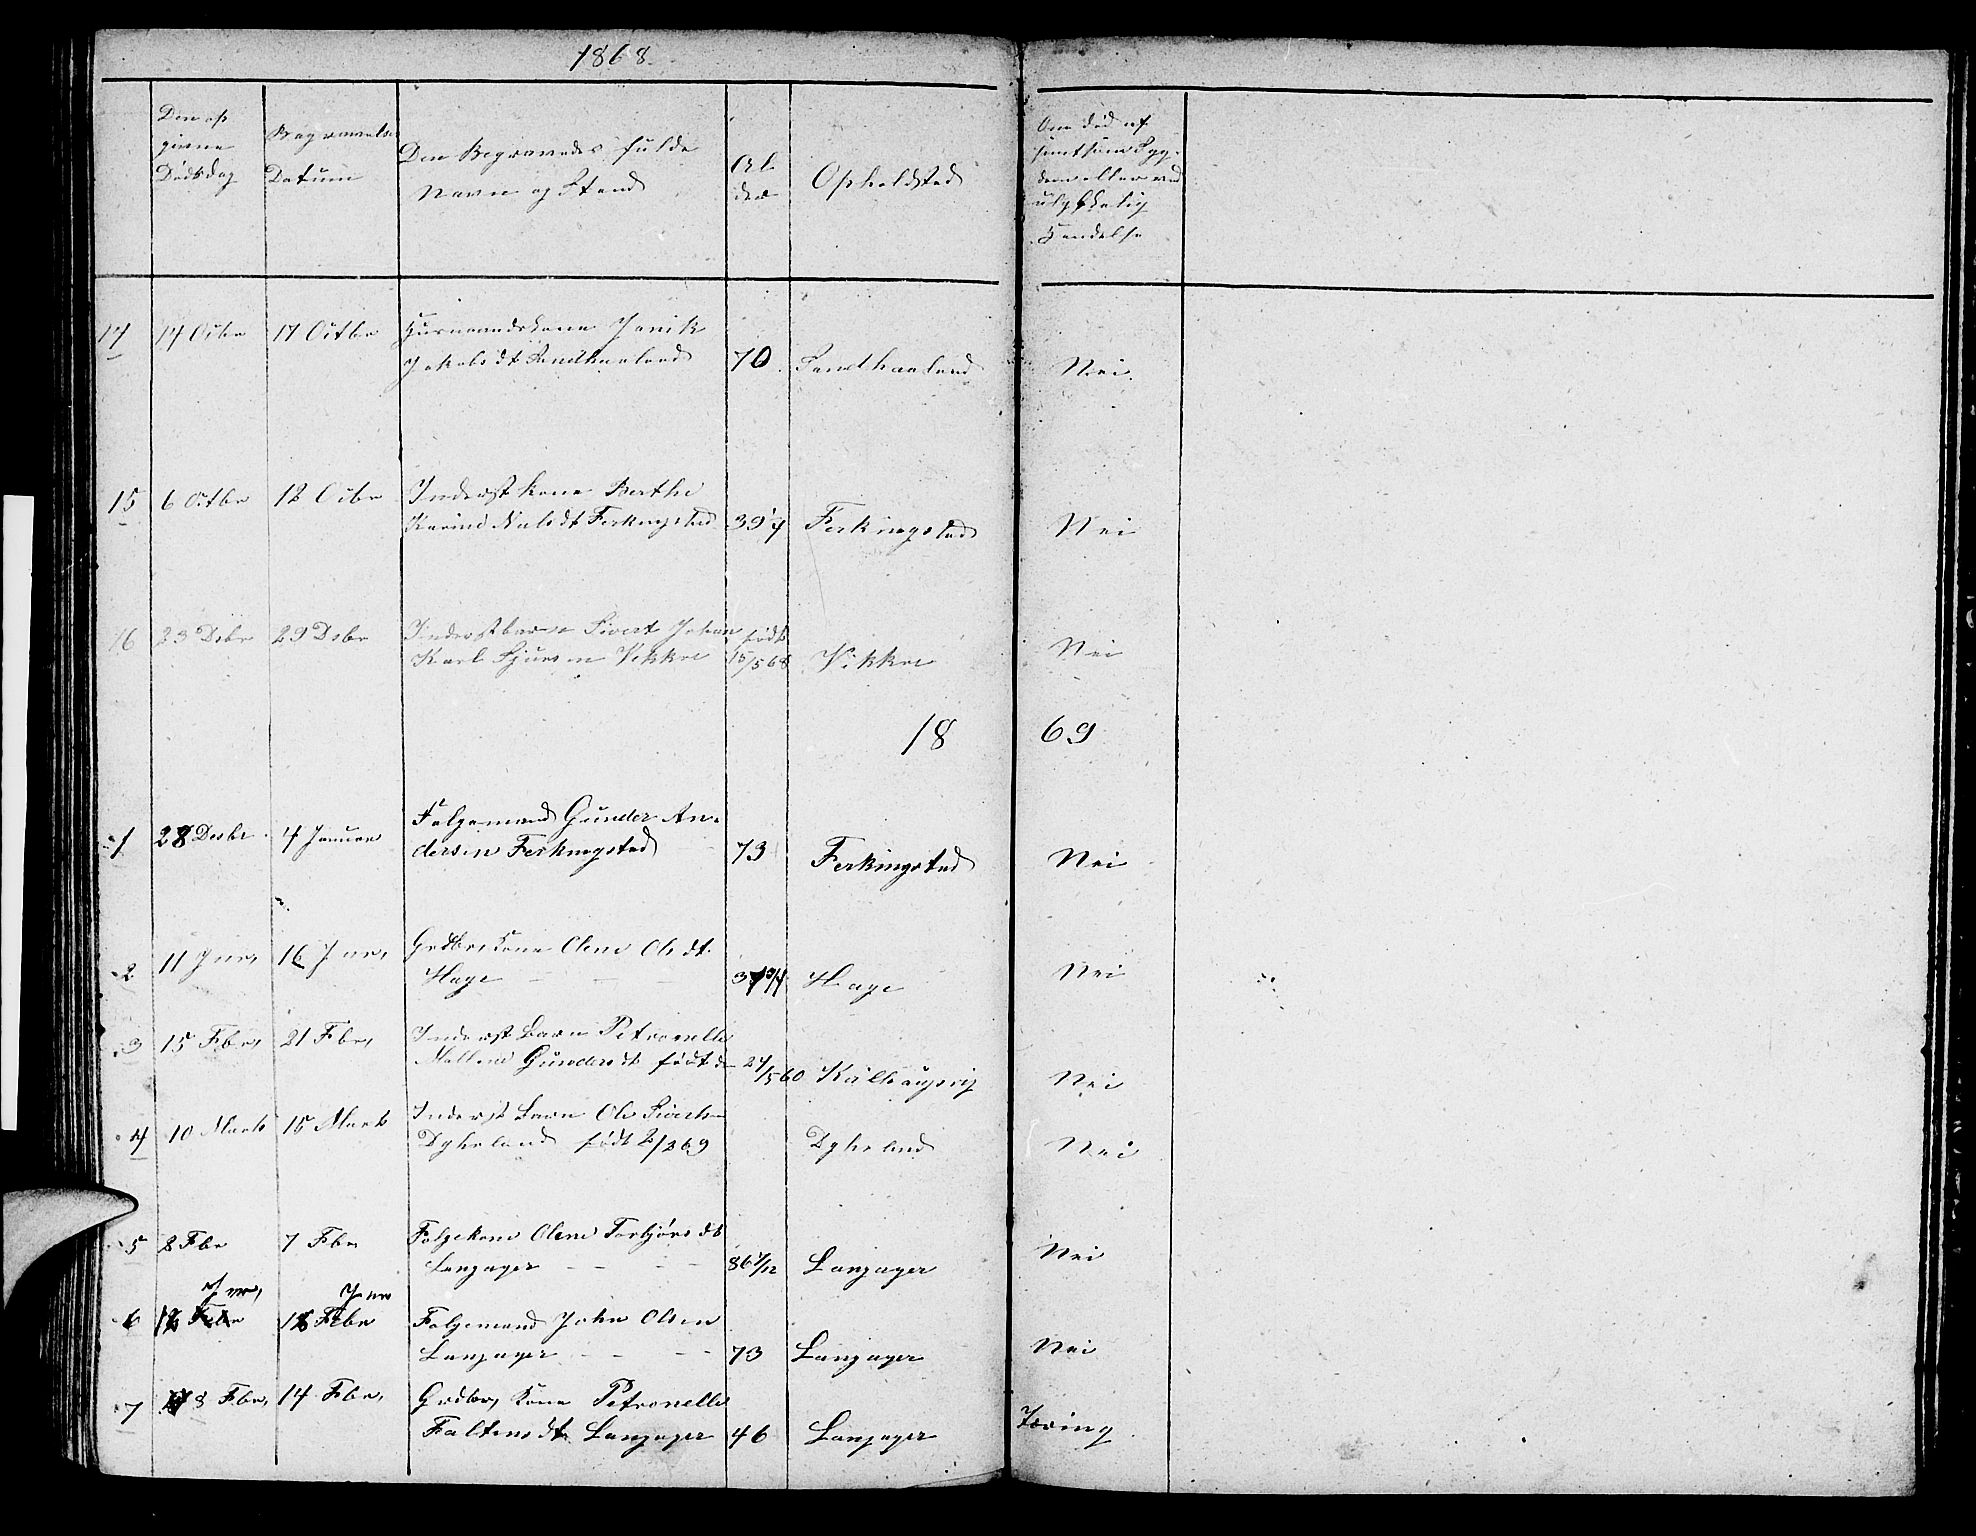 1868.
Den op
givne
Dødsdag
Begravelses
Datum
Den Begravedes fulde
Navn og Stand
Al
der
Opholdsted
Om død af
smitsom Syg-
dom eller ved
ulykkelig
Hendelse
14 14 Octbr 17 Octbr Huusmandskone
Jakobsdt Sandhaaland 70 Sandhaaland Nei.
15 6 Octbr 12 Octbr Inderst Kone Berthe
Karine Nielsdt Ferkingstad 39 Ferkingstad Nei
16 23 Debr 29 Debr Inderstbarn Sivert Johan født
Karl Sjursen Vikkre 15/5 68 Vikkre Nei
1869
1 28 Decbr 4 Januar Folgemand Gunder An-
dersen Ferkingstad 73 Ferkingstad Nei
2 11 Jnr, 16 Jnr, Grdbr, Kone Olene Olsdt.
Hage Hage Nei
3 15 Fbr, 21 Fbr, Inderst Barn Petronelle
Mallene Gundersdt født d 24/5 60 Nei
4 10 Marts 15 Marts Inderst Barn Ole Sivertsen
Dyhreland født 2/2 69 Dyhreland Nei
5 2 Fbr 7 Fbr Folgekone Olene Torbjørnsdt
Langager 86 1/12 Langager Nei
Jnr, Jnr
6 12 Febr 18 Febr Folgemand John Olsen
Langager 73 Langager Nei
7 8 Fbr, 14 Fbr, Grdbr, Kone Petronelle
Faltensdt Langager 46 Langager Tæring